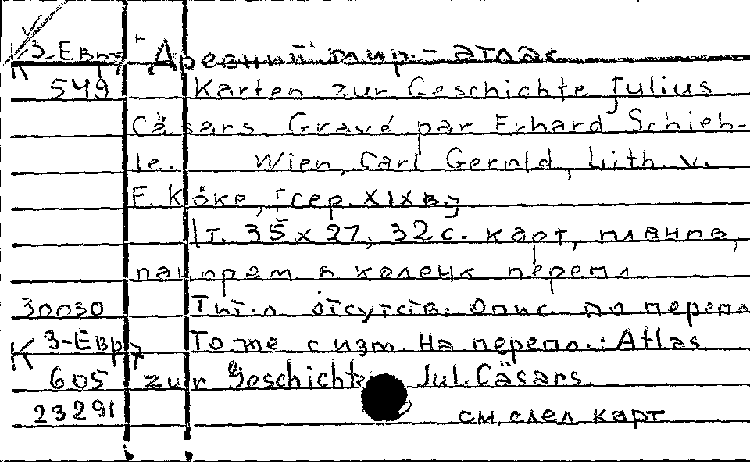 К 3-Евр. "Древний мир" - атлас
549 Karten zur Geschichte Julius
Cäsars. Gravé par Erhard Schieb-
le. Wien, Carl Gerold, Lith. v.
F. Köke, [сер. XIX в.]
1 т. 35 x 27, 32 с. карт, планпа,
панорам в коленк перепл
30030 Тит. л отсутств. Опис по перепл
К 3-Евр. То же с изм. На перепл.: Atlas
605 zur Geschichte Jul. Cäsars.
23291 см. след карт